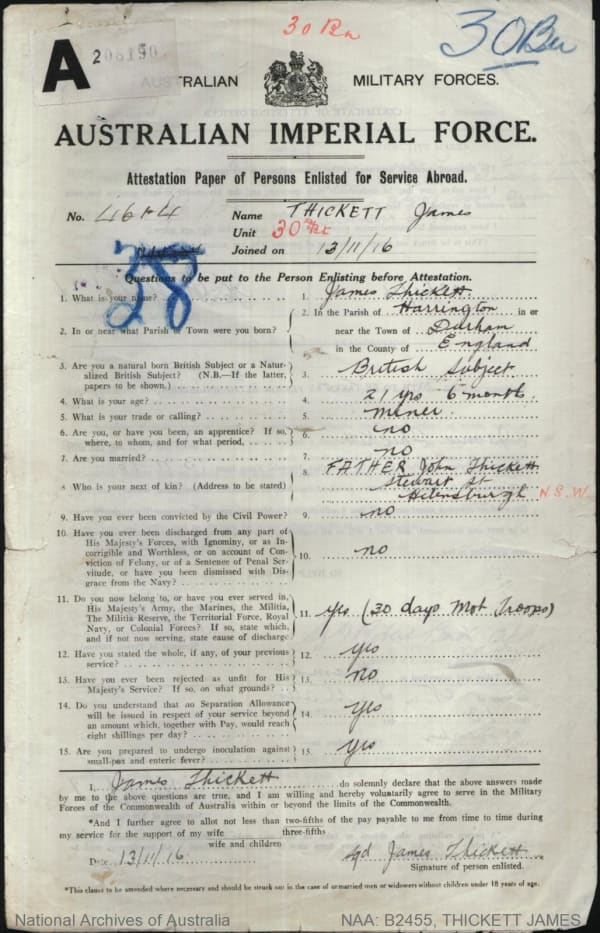 30 Bn
30 Bn
A 206190
AUSTRALIAN MILITARY FORCES.
AUSTRALIAN IMPERIAL FORCE.
Attestation Paper of Persons Enlisted for Service Abroad.
No. Name THICKETT James
Unit 30
Joined on 13/11/16
28
Questions to be put to the Person Enlisting before Attestation.
1. What is your name? 1. James Thickett
2. In or near what Parish or Town were you born? 2. In the Parish of Harrington in or
near the Town of Durham
in the County of England
3. Are you a natural born British Subject or a Natur-
alized British Subject? (N.B.—If the latter,
papers to be shown.) 3. British Subject
4. What is your age? 4. 21 yrs 6 months
5. What is your trade or calling? 5. miner
6. Are you, or have you been, an apprentice? If so,
where, to whom, and for what period, 6. no
7. Are you married? 7. no
8 Who is your next of kin? (Address to be stated) 8. FATHER John Thickett
Stewart St
Helensburgh N.S.W.
9. Have you ever been convicted by the Civil Power? 9. no
10. Have you ever been discharged from any part of
His Majesty's Forces, with Ignominy, or as In-
corrigible and Worthless, or on account of Con-
viction of Felony, or of a Sentence of Penal Ser-
vitude, or have you been dismissed with Dis-
grace from the Navy? 10. no
11. Do you now belong to, or have you ever served in,
His Majesty's Army, the Marines, the Militia,
The Militia Reserve, the Territorial Force, Royal
Navy, or Colonial Forces? If so, state which,
and if not now serving, state cause of discharge 11. yes (30 days Mob Troops)
12. Have you stated the whole, if any, of your previous
service? 12. yes
13. Have you ever been rejected as unfit for His
Majesty's Service? If so, on what grounds? 13. no
14. Do you understand that no Separation Allowance
will be issued in respect of your service beyond
an amount which, together with Pay, would reach
eight shillings per day? 14. yes
15. Are you prepared to undergo inoculation against
small-pox and enteric fever? 15. yes
I, James Thickett do solemnly declare that the above answers made
by me to the above questions are true, and I am willing and hereby voluntarily agree to serve in the Military
Forces of the Commonwealth of Australia within or beyond the limits of the Commonwealth.
*And I further agree to allot not less than two-fifths of the pay payable to me from time to time during
three-fifths
my service for the support of my wife
wife and children
Date 13/11/16 sgd James Thickett
Signature of person enlisted.
*This clause to be amended where necessary and should be struck out in the case of unmarried men or widowers without children under 18 years of age.
National Archives of Australia NAA: B2455, THICKETT JAMES